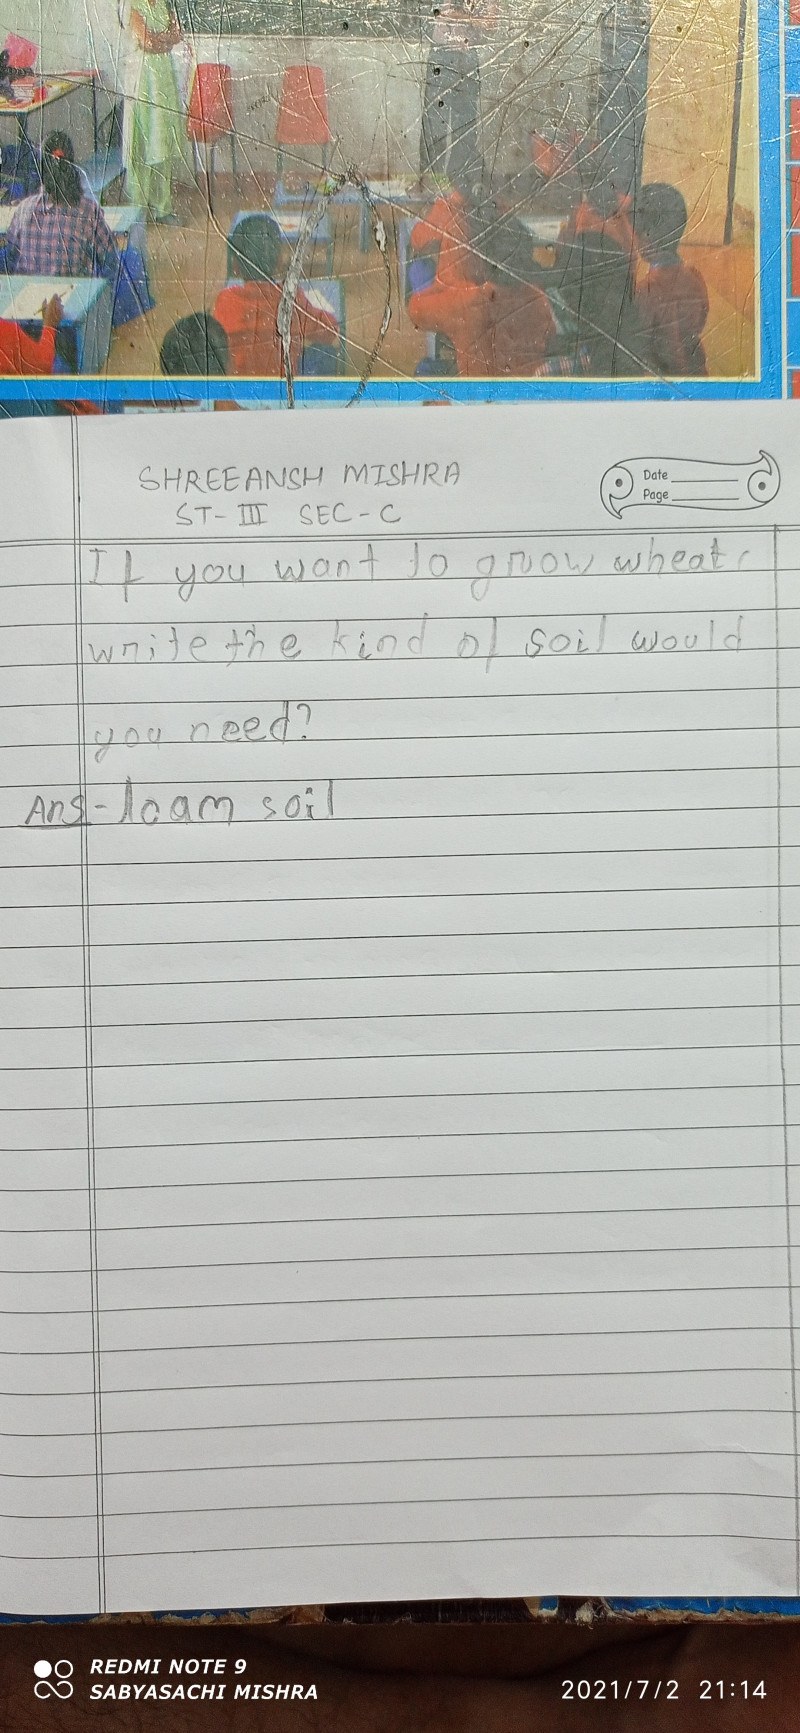 SHREEANSH MISHRA
ST-III SEC-C
Date
Page
If you want to grow wheat,
write the kind of soil would
you need?
Ans-loam soil
REDMI NOTE 9
SABYASACHI MISHRA
2021/7/2 21:14